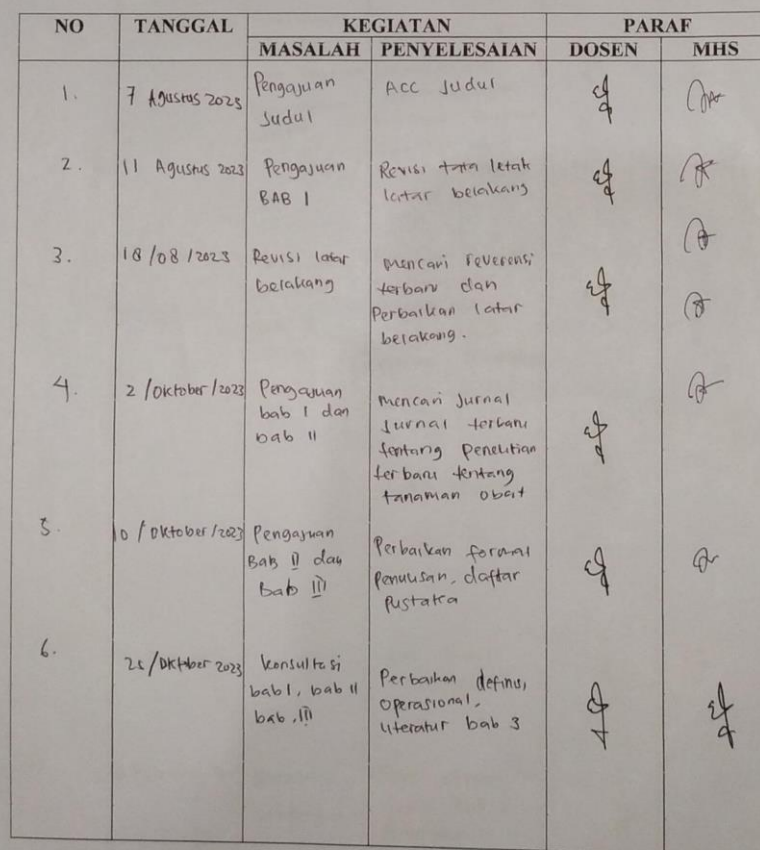 NO TANGGAL KEGIATAN PARAF
MASALAH PENYELESAIAN DOSEN MHS
1. 7 Agustus 2023 Pengajuan Judul Acc Judul
2. 11 Agustus 2023 Pengajuan BAB I Revisi tata letak latar belakang
3. 18/08/2023 Revisi latar belakang mencari reverensi terbaru dan Perbaikan latar belakang.
4. 2/Oktober/2023 Pengajuan bab I dan bab II mencari Jurnal Jurnal terbaru tentang Penelitian terbaru tentang tanaman obat
5. 10/Oktober/2023 Pengajuan Bab II dan Bab III Perbaikan format Penulisan, daftar Pustaka
6. 25/Oktober 2023 konsultasi bab I, bab II bab, III Perbaikan definisi, operasional, literatur bab 3